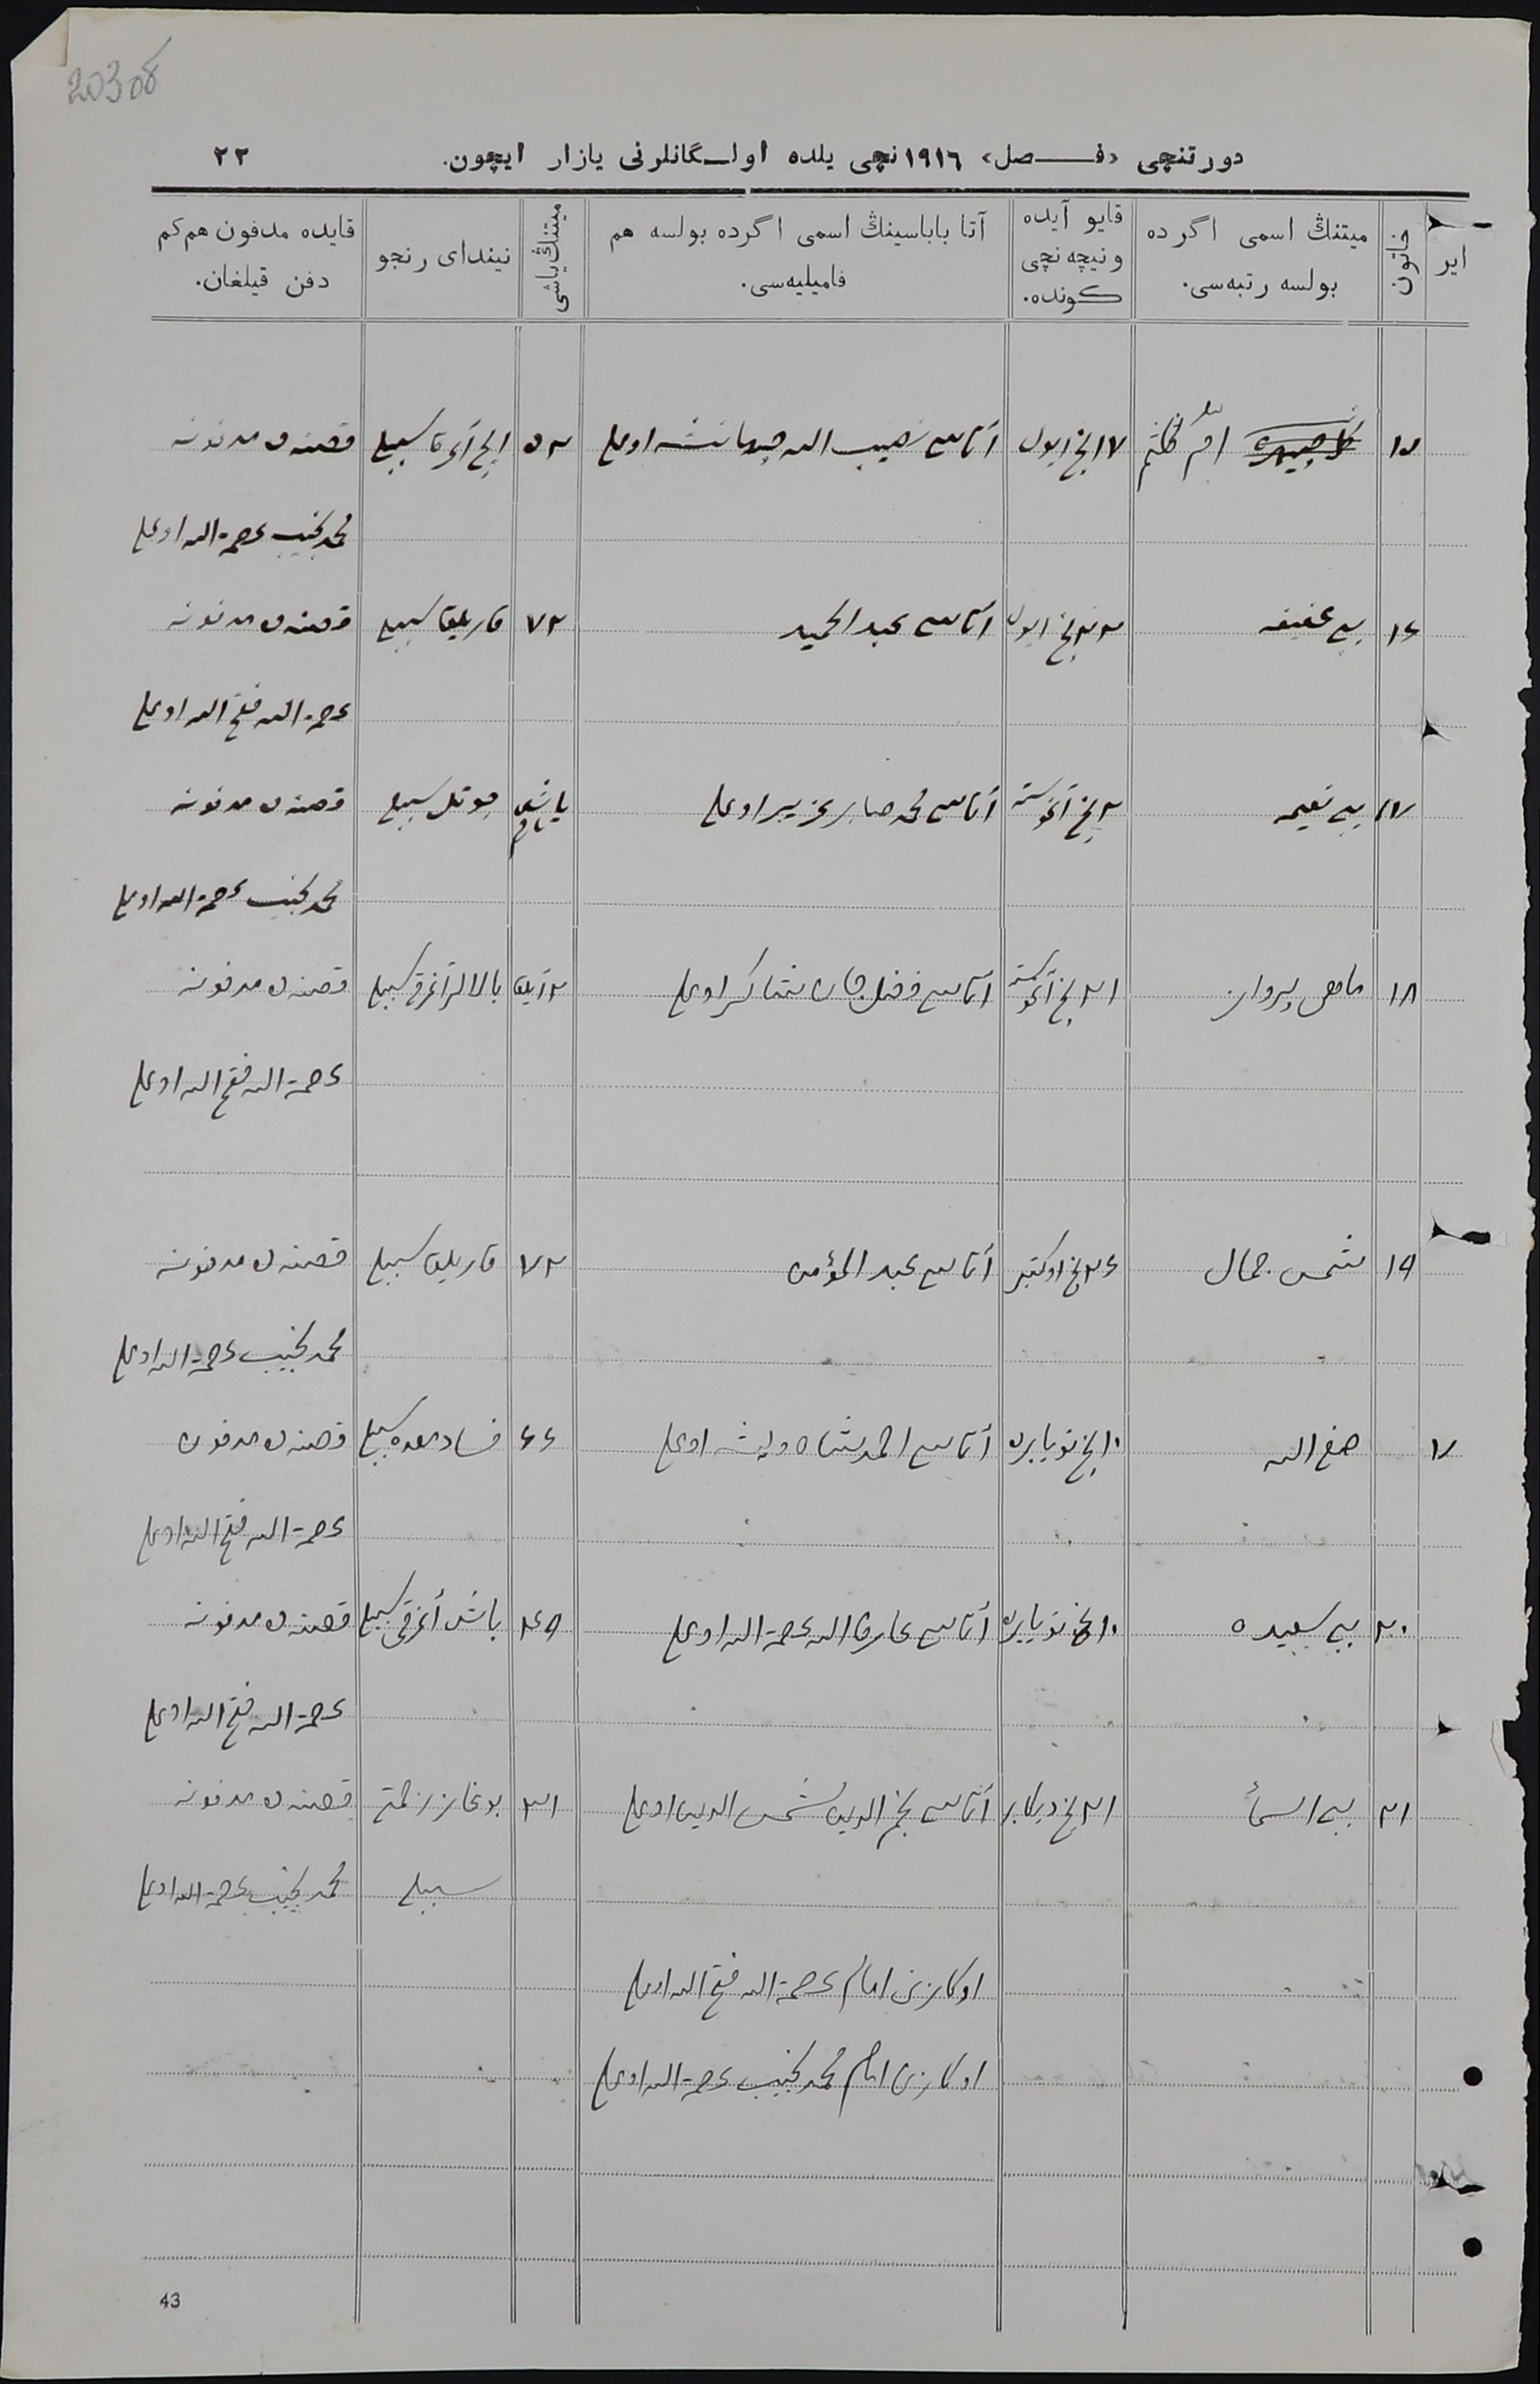 20308
دورتنچی «فـــصل» ١٩١٦نچی یلده اولـگانلرنی یازار ایچون.
٢٢
ایر
خاتون
میتنڭ اسمی اگرده بولسه رتبه‌سی.
قایو آیده ونیچه نچی کونده.
آتا باباسینڭ اسمی اگرده بولسه هم فامیلیه‌سی.
میتنڭ یاشی
نیندای رنجو
قایده مدفون هم کم دفن قیلغان.
١٥ امّ كلثم ١٧ نچی ایول آتاسی حبیب الله اوغلی ٥٢ ایچ آغرقا سببلی مدفونه
محمد نجیب رحمة الله اوغلی
١٦ بیبی عفیفه ٢٢ نچی ایول آتاسی عبد الحمید ٧٢ قاریلق سببلی مدفونه
رحمة الله فتح الله اوغلی
١٧ بیبی نعیمه ٢ نچی آغوست آتاسی محمد صابر اوغلی یوتل سببلی مدفونه
محمد نجیب رحمة الله اوغلی
١٨ ماهی پرواز ٢١ نچی آغوست آتاسی فضل جان شاکر اوغلی ٢ آیلق بالالر آغرقی سببلی مدفونه
رحمة الله فتح الله اوغلی
١٩ شمس جمال ٢٦ نچی اوکتبر آتاسی عبد المؤمن ٧٢ قاریلق سببلی مدفونه
محمد نجیب رحمة الله اوغلی
١٧ الله ١٠ نچی نویابره آتاسی احمد شاه اوغلی ٦٦ فساد معده سببلی مدفون
رحمة الله فتح الله اوغلی
٢٠ بیبی سعیده ١٠ نچی نویابره آتاسی عارف الله رحمة الله اوغلی ٤٩ باش آغرقی سببلی مدفونه
رحمة الله فتح الله اوغلی
٢١ بیبی اسمأ ٢١ نچی دیکابر آتاسی نجم الدین شمس الدین اوغلی ٣١ بوغاز زحمتی مدفونه
سببلی محمد نجیب رحمة الله اوغلی
اوکازنی امام رحمة الله فتح الله اوغلی
اوکازنی امام محمد نجیب رحمة الله اوغلی
43